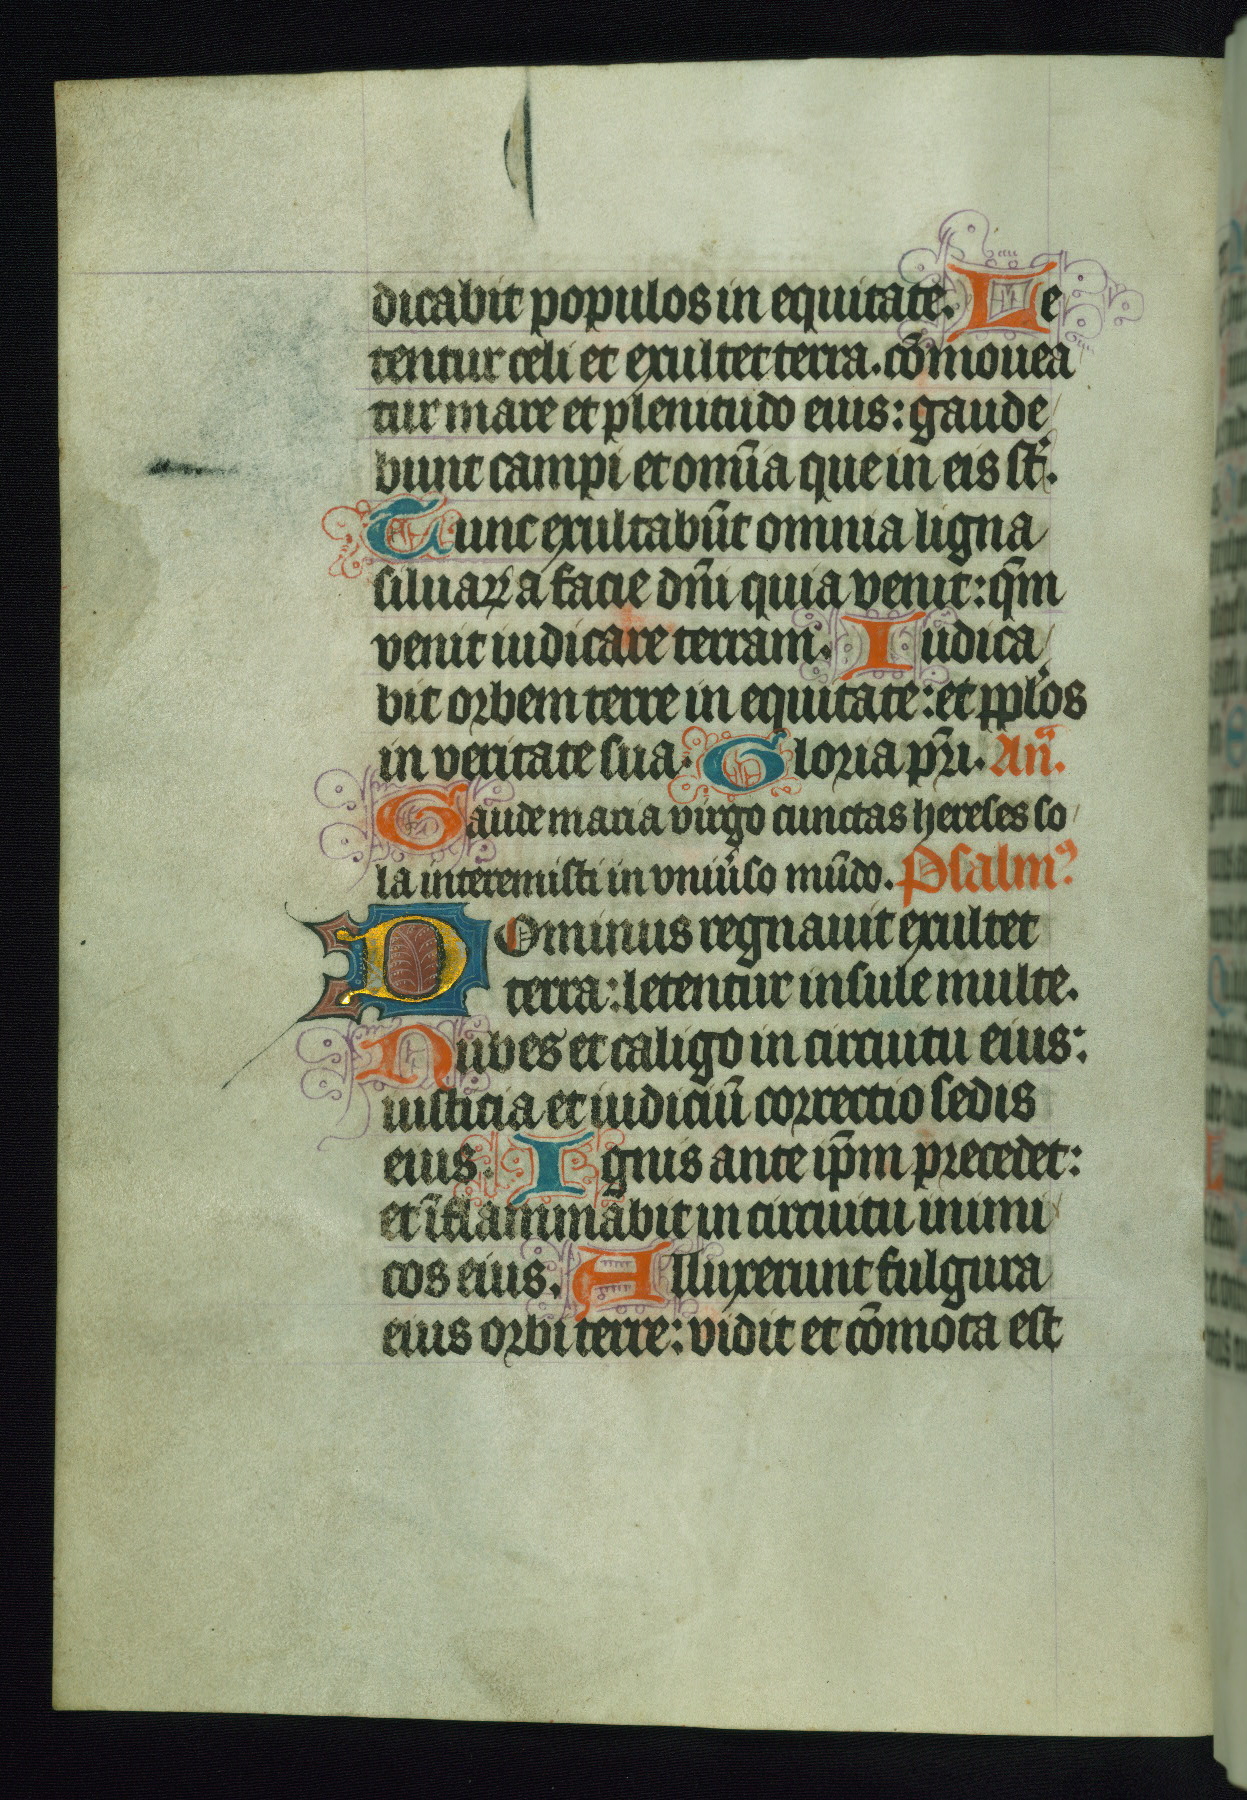 dicabit populos in equitate. Le
tentur celi et exultet terra. cōmouea
tur mare et plenitudo eius: gaude
bunt campi et omīa que in eis st̄.
Tunc exultabūt omnia ligna
siluaꝝ a facie dn̄i quia venit: qm̄
venit iudicare terram. Iudica
bit orbem terre in equitate: et pplōs
in veritate sua. Gloria pr̄i. An̄.
Gaude maria virgo cunctas hereses so
la interemisti in vniu̇so mūdo. Psalmꝰ
Dominus regnauit exultet
terra: letentur insule multe.
Nubes et caligo in circuitu eius:
iusticia et iudiciū correctio sedis
eius. Ignis ante ip̄m precedet:
et īflammabit in circuitu inimi
cos eius. Alluxerunt fulgura
eius orbi terre: vidit et cōmota est